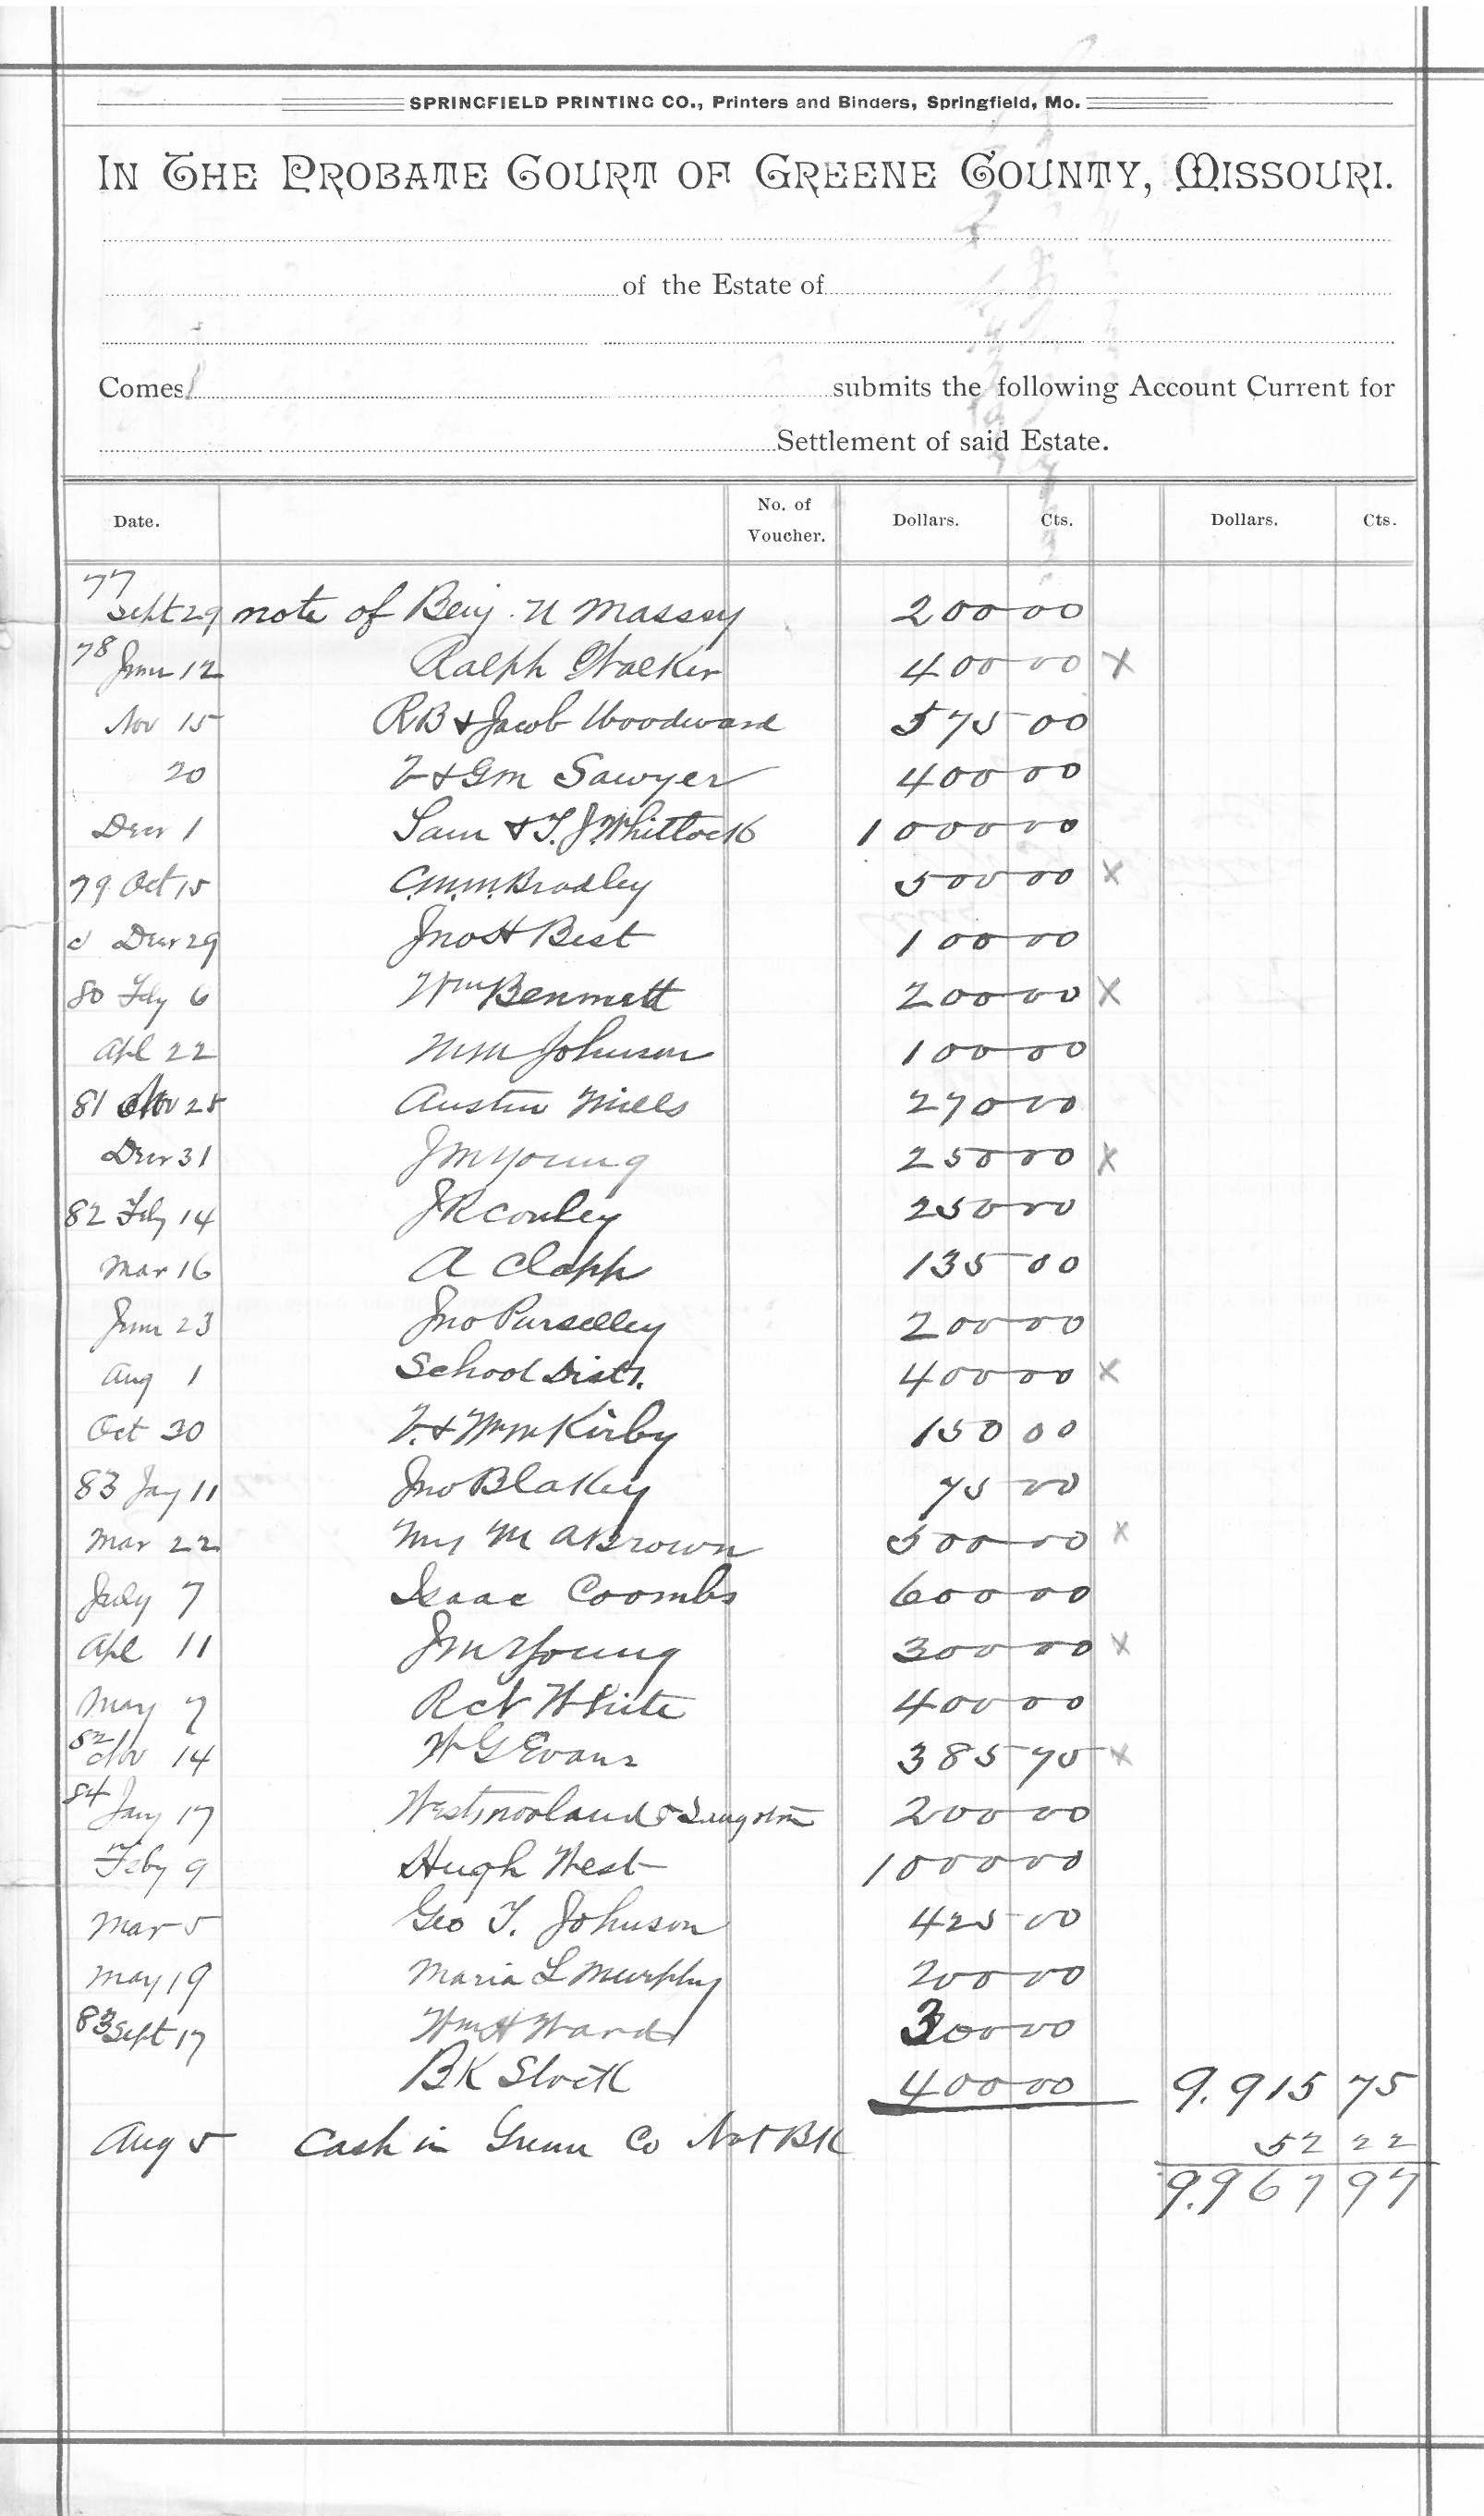 SPRINGFIELD PRINTING CO., Printers and Binders, Springfield, Mo.
IN THE PROBATE COURT OF GREENE COUNTY, MISSOURI.
of the Estate of
Comes submits the following Account Current for
Settlement of said Estate.
Date. No. of Voucher. Dollars. Cts. Dollars. Cts.
77
Sept 29 note of Benj. N Massey 200 00
78 June 12 Ralph Walker 400 00 X
Nov 15 RB & Jacob Woodward 575 00
20 & GM Sawyer 400 00
Decr 1 Sam & T. J. Whitlock 1000 00
79 Oct 15 C.M.M. Bradley 500 00 X
Decr 29 Jno H Best 100 00
80 Feby 6 Wm Bennett 200 00 X
Apl 22 Wm Johnson 100 00
81 Nov 25 Austin Mills 270 00
Decr 31 JM Young 250 00 X
82 Feby 14 JR Conley 250 00
Mar 16 A Clapp 135 00
June 23 Jno Purselley 200 00
Aug 1 School Dist. 400 00 X
Oct 30 & Wm Kirby 150 00
83 Jay 11 Jno Blakey 75 00
Mar 22 Mrs M A Brown 500 00 X
July 7 Isaac Coombs 600 00
Apl 11 JM Young 300 00 X
May 7 White 400 00
82
Nov 14 WG Evans 385 75 X
84
Jany 17 Westmoreland & Langston 200 00
Feby 9 Hugh West 1000 00
Mar 5 Geo T. Johnson 425 00
May 19 Maria L Murphy 200 00
83 Sept 17 Wm H Ward 300 00
BK Stock 400 00 9.915 75
Aug 5 Cash in Green Co Nat BK 52 22
9.967 97